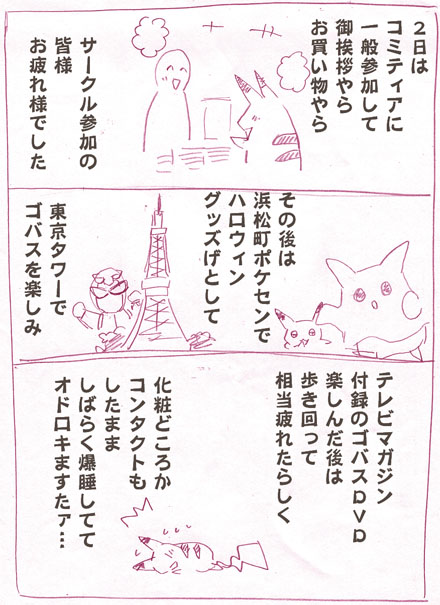 2日は
コミティアに
一般参加して
御挨拶やら
お買い物やら
サークル参加の
皆様
お疲れ様でした
その後は
浜松町ポケセンで
ハロウィン
グッズげとして
東京タワーで
ゴバスを楽しみ
テレビマガジン
付録のゴバスDVD
楽しんだ後は
歩き回って
相当疲れたらしく
化粧どころか
コンタクトも
したまま
しばらく爆睡してて
オドロキますたァ…